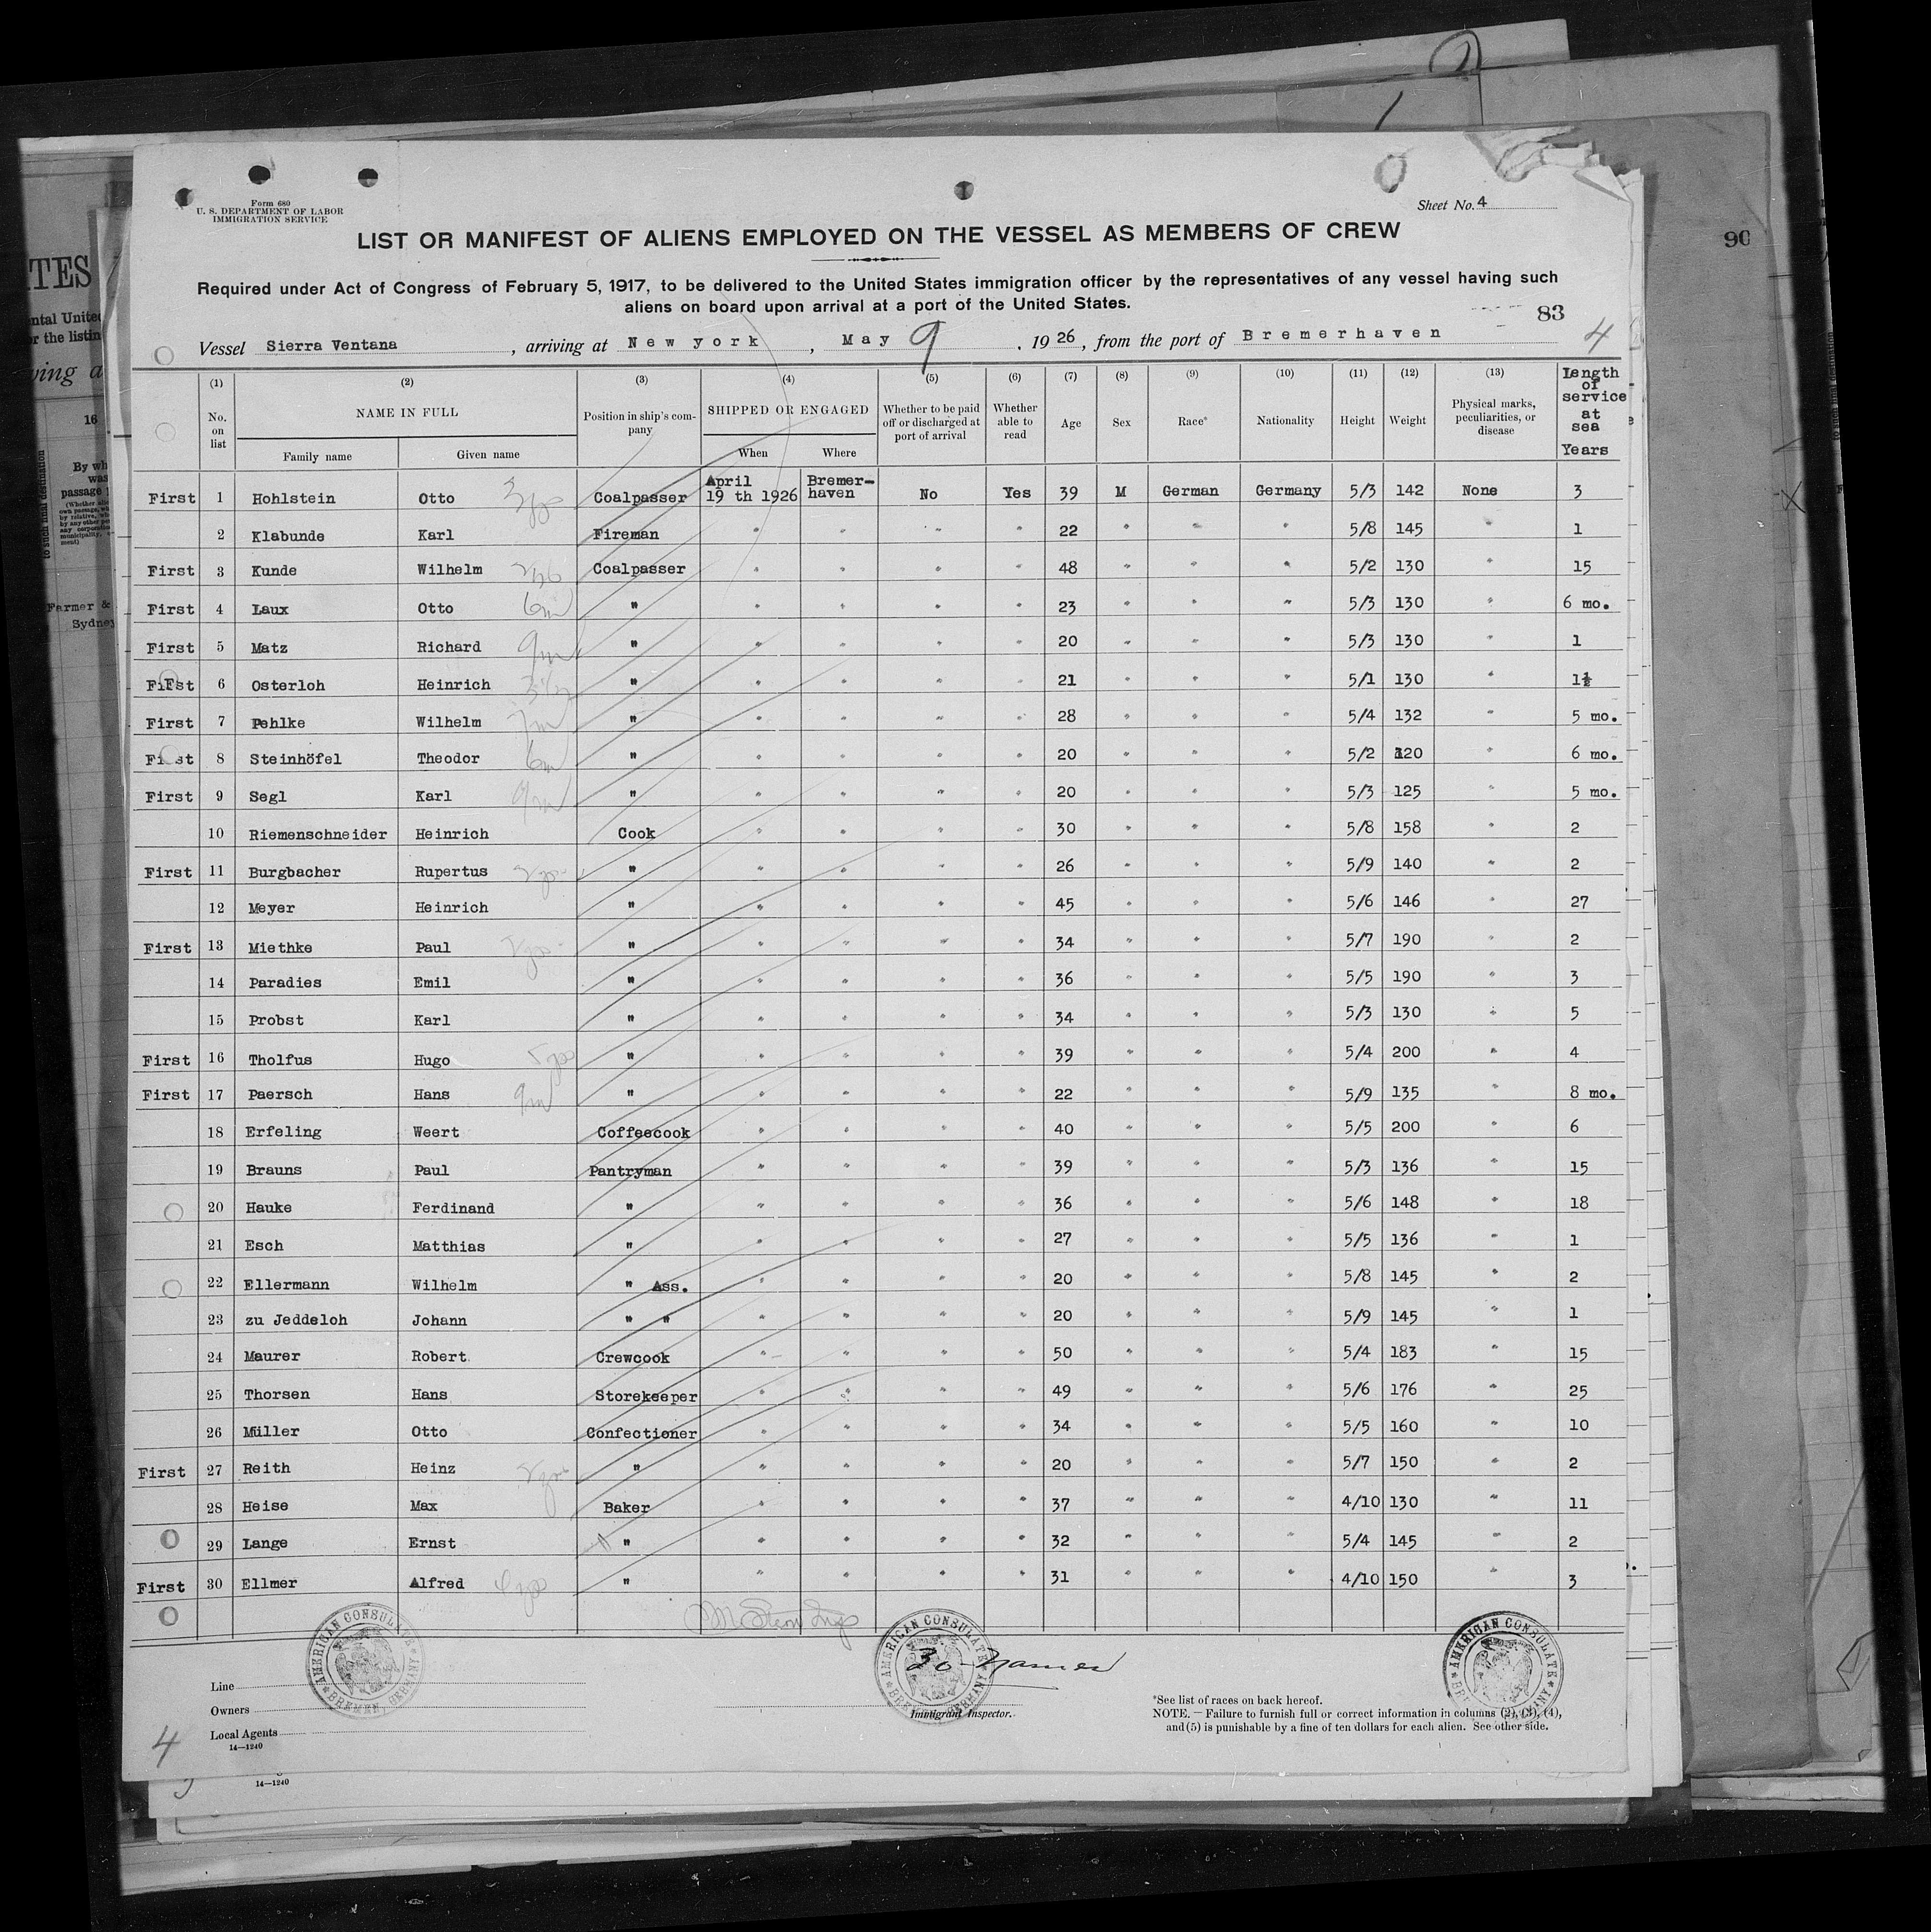 Form 680
U. S. DEPARTMENT OF LABOR
IMMIGRATION SERVICE
Sheet No. 4
LIST OR MANIFEST OF ALIENS EMPLOYED ON THE VESSEL AS MEMBERS OF CREW
Required under Act of Congress of February 5, 1917, to be delivered to the United States immigration officer by the representatives of any vessel having such
aliens on board upon arrival at a port of the United States.
90
83
4
Vessel Sierra Ventana, arriving at New york, May 9, 1926, from the port of Bremerhaven
(1) (2) (3) (4) (5) (6) (7) (8) (9) (10) (11) (12) (13) Length of service at sea Years
No. on list NAME IN FULL Position in ship's company SHIPPED OR ENGAGED Whether to be paid off or discharged at port of arrival Whether able to read Age Sex Race* Nationality Height Weight Physical marks, peculiarities, or disease
Family name Given name When Where
First 1 Hohlstein Otto Coalpasser April 19 th 1926 Bremer-haven No Yes 39 M German Germany 5/3 142 None 3
2 Klabunde Karl Fireman " " " " 22 " " " 5/8 145 " 1
First 3 Kunde Wilhelm Coalpasser " " " " 48 " " " 5/2 130 " 15
First 4 Laux Otto 6m " " " " " 23 " " " 5/3 130 " 6 mo.
First 5 Matz Richard 9m " " " " " 20 " " " 5/3 130 " 1
First 6 Osterloh Heinrich " " " " " 21 " " " 5/1 130 " 1½
First 7 Pehlke Wilhelm 7m " " " " " 28 " " " 5/4 132 " 5 mo.
First 8 Steinhöfel Theodor 6m " " " " " 20 " " " 5/2 120 " 6 mo.
First 9 Segl Karl 9m " " " " " 20 " " " 5/3 125 " 5 mo.
10 Riemenschneider Heinrich Cook " " " " 30 " " " 5/8 158 " 2
First 11 Burgbacher Rupertus " " " " " 26 " " " 5/9 140 " 2
12 Meyer Heinrich " " " " " 45 " " " 5/6 146 " 27
First 13 Miethke Paul " " " " " 34 " " " 5/7 190 " 2
14 Paradies Emil " " " " " 36 " " " 5/5 190 " 3
15 Probst Karl " " " " " 34 " " " 5/3 130 " 5
First 16 Tholfus Hugo " " " " " 39 " " " 5/4 200 " 4
First 17 Paersch Hans 9m " " " " " 22 " " " 5/9 135 " 8 mo.
18 Erfeling Weert Coffeecook " " " " 40 " " " 5/5 200 " 6
19 Brauns Paul Pantryman " " " " 39 " " " 5/3 136 " 15
20 Hauke Ferdinand " " " " " 36 " " " 5/6 148 " 18
21 Esch Matthias " " " " " 27 " " " 5/5 136 " 1
22 Ellermann Wilhelm " Ass. " " " " 20 " " " 5/8 145 " 2
23 zu Jeddeloh Johann " " " " " " 20 " " " 5/9 145 " 1
24 Maurer Robert Crewcook " " " " 50 " " " 5/4 183 " 15
25 Thorsen Hans Storekeeper " " " " 49 " " " 5/6 176 " 25
26 Müller Otto Confectioner " " " " 34 " " " 5/5 160 " 10
First 27 Reith Heinz " " " " " 20 " " " 5/7 150 " 2
28 Heise Max Baker " " " " 37 " " " 4/10 130 " 11
29 Lange Ernst " " " " " 32 " " " 5/4 145 " 2
First 30 Ellmer Alfred " " " " " 31 " " " 4/10 150 " 3
AMERICAN CONSULATE BREMEN, GERMANY
AMERICAN CONSULATE BREMEN, GERMANY
AMERICAN CONSULATE BREMEN, GERMANY
30 Names
Line
Owners
Local Agents
14—1240
Immigrant Inspector.
*See list of races on back hereof.
NOTE. — Failure to furnish full or correct information in columns (2), (3), (4),
and (5) is punishable by a fine of ten dollars for each alien. See other side.
4
14—1240
TES
ntal United
or the listin
ving a
16
By wh
was
passage
Farmer &
Sydney